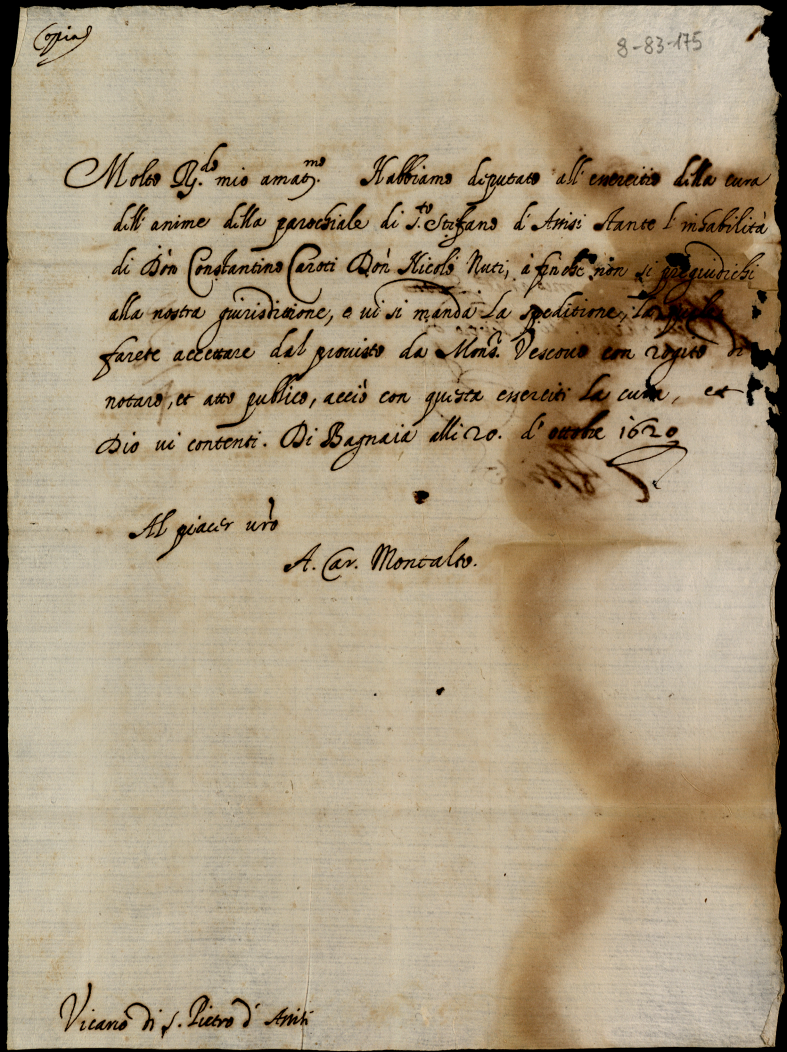 Copia
8-83-175
Molto R.do mio amat.mo Habbiamo deputato all' essercitio della cura
dell' anime della parochiale di S.to Stefano d' Assisi stante l' inhabilità
di Don Constantino Caroti Don Nicolò Nuti, à finche non si pregiudichi
alla nostra giurisdittione, e vi si manda la speditione, la quale
farete accettare dal provisto da Mons.r Vescovo con rogito di
notaro, et atto publico, acciò con questa esserciti la cura, et
Dio vi contenti. Di Bagnaia alli 20. d' ottobre 1620
Al piacer vr̃o
A. Car. Montalto.
Vicario di S. Pietro d' Assisi